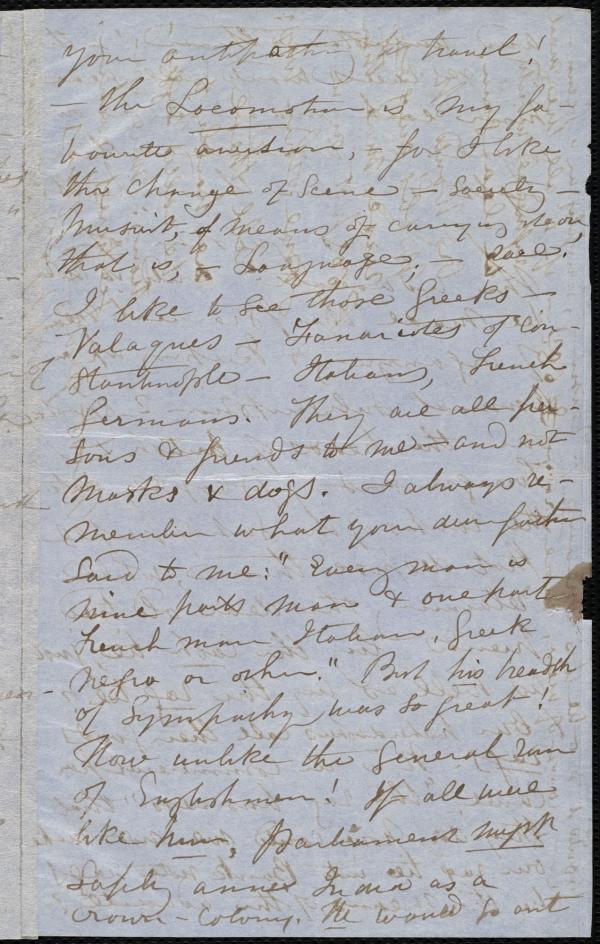 your antipathy to travel!
— the Locomotion is my fa-
vourite aversion, – for I like
the change of Scene – Society –
Pursuit, & means of carrying it on,
that is, – Language; –
I like to see those Greeks –
Valaques – Fanariotes of Con-
stantinople – Italians, French
Germans. They are all per-
sons & friends to me – and not
Masks & dogs. I always re-
member what your dear father
said to me: "Every man is
nine parts man & one part
French man Italian, Greek
Negro or other." But his breadth
of Sympathy was so great!
How unlike the general run
of Englishmen! If all were
like him, Parliament might
safely annex India as a
crown-colony. He would go out